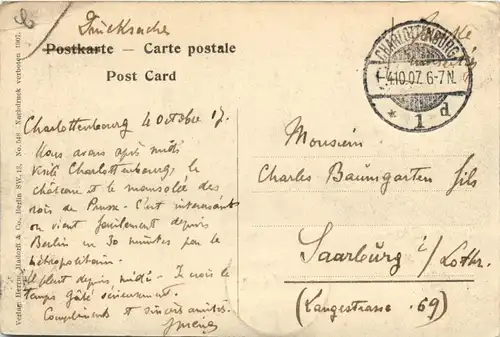 Drucksache
Postkarte — Carte postale
Post Card
CHARLOTTENBURG
4.10.07. 6-7 N.
* 1 d
Charlottenbourg 4 octobre 07.
Nous avons après midi
visité Charlottenbourg, le
château et le mausolée des
rois de Prusse. C'est intéressant
on vient facilement depuis
Berlin en 30 minutes par le
métropolitain.
Il pleut depuis midi. Je crois le
temps gâté sérieusement.
Compliments et sincères amitiés.
Monsieur
Charles Baumgarten fils
Saarburg i/ Lothr.
(Langestrasse 69)
Verlag: Herm. Hadorff & Co., Berlin SW. 13. No. 548 Nachdruck verboten 1907.